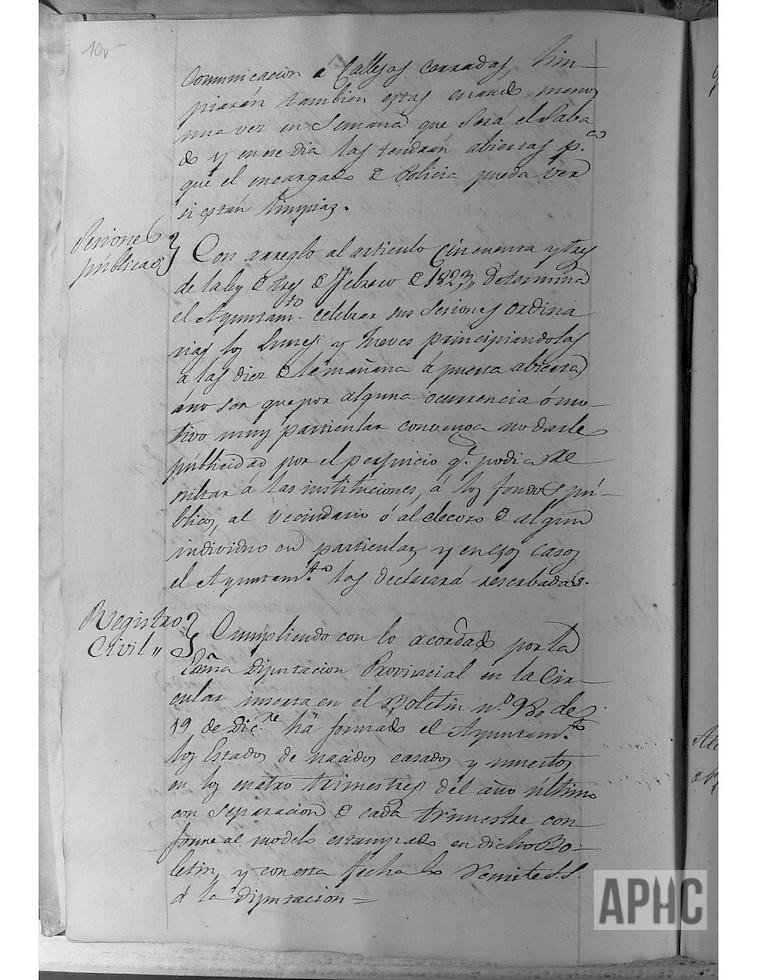 10v
comunicacion á Callejas cerradas, lim-
piarán tambien estas cuando menos
una vez en semana que será el Saba
do y en ese dia las tendrán abiertas p.a
que el encargado de Policia pueda ver
si están limpias.
Sesiones
públicas
Con arreglo al articulo cincuenta y tres
de la ley de tres de Febrero de 1823,, determina
el Ayuntam.to celebrar sus Sesiones ordina
rias los Lunes y Jueves principiandolas
á las diez de la mañana á puerta abierta
áno ser que por alguna ocurrencia ó mo-
tivo muy particular convenga no darle
públicidad por el perjuicio q.e podia re
sultar á las instituciones, á los fondos pú-
blicos, al vecindario ó al decoro de algun
individuo en particular y en esos casos
el Ayuntam.to las declarará reserbadas.
Registro
Civil,,
Cumpliendo con lo acordado por la
Exma Diputacion Provincial en la Cir-
cular inserta en el Boletin n.o 98,, de
19 de Dic.re ha formado el Ayuntam.to
los Estados de nacidos casados y muertos
en los cuatro trimestres del año último
con separacion de cada trimestre con
forme al modelo estampado en dicho Bo-
letin, y con esta fecha lo remite
á la Diputacion=
APHC